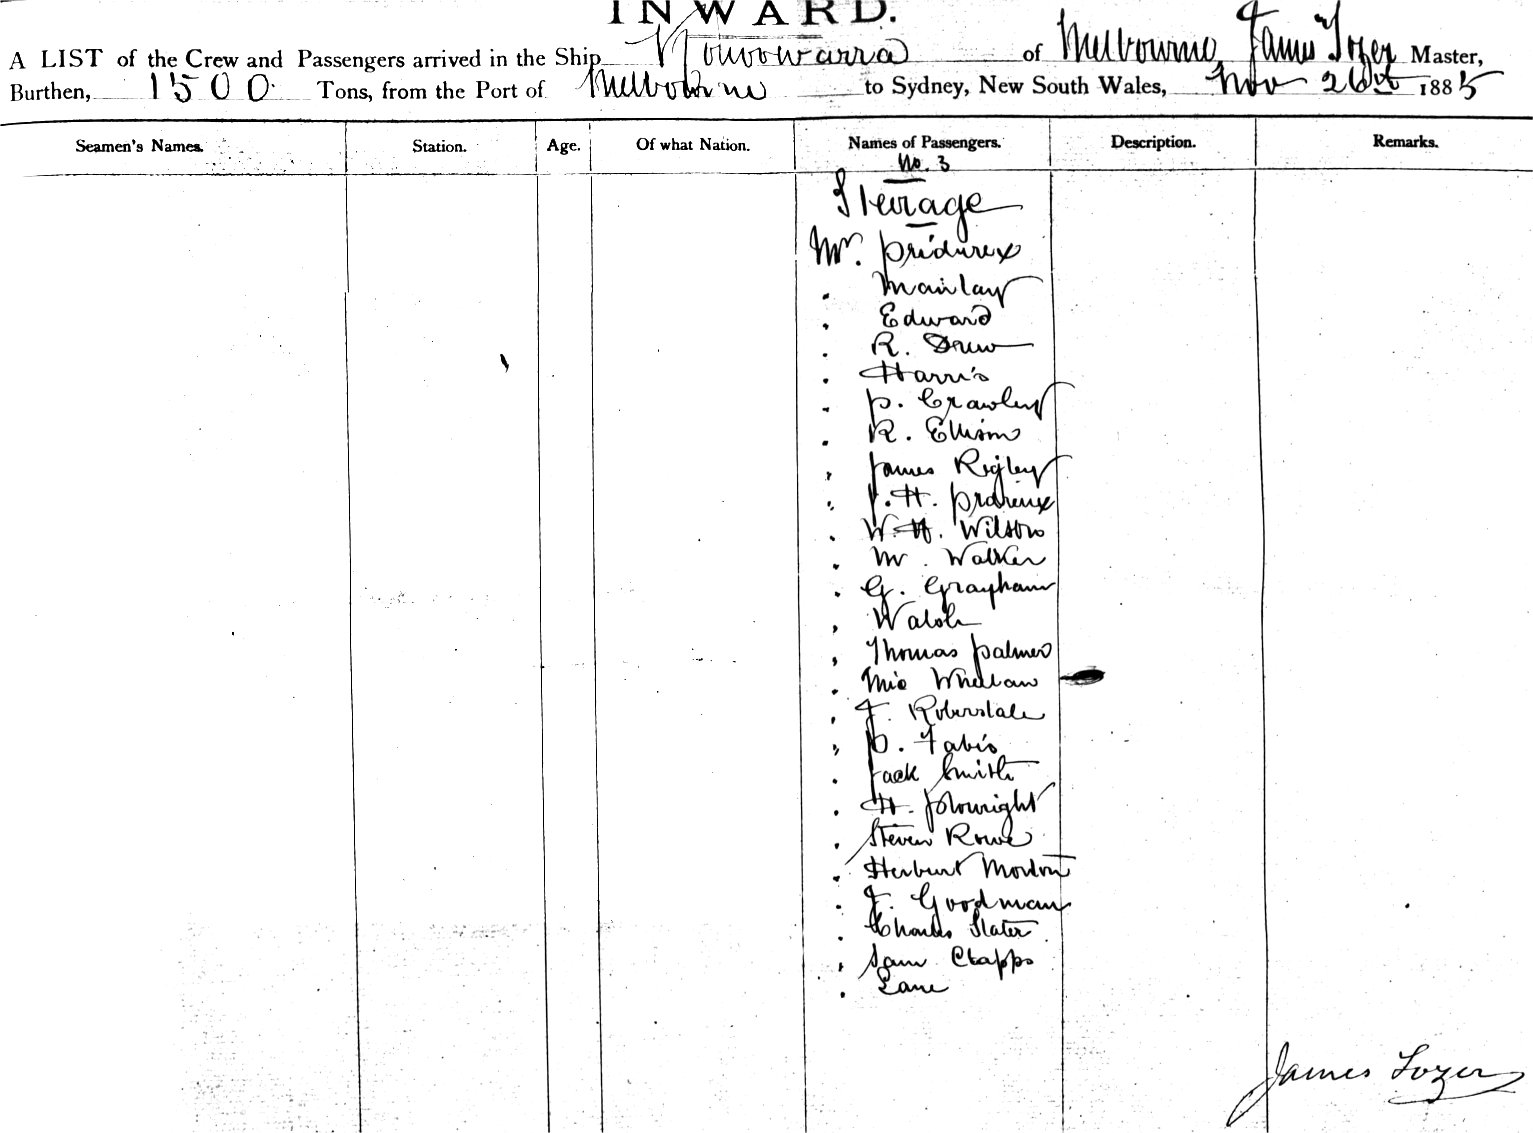 INWARD.
A LIST of the Crew and Passengers arrived in the Ship Nowowarra of Melbourne, James Tozer Master,
Burthen, 1500 Tons, from the Port of Melbourne to Sydney, New South Wales, Nov 26th 1885
Seamen's Names. Station. Age. Of what Nation. Names of Passengers. Description. Remarks.
No. 3
Steerage
Mr. Pridurex
. Edward
. R. Drew
. Harris
. P. Crawley
. R. Ellison
, James Rigley
. H.
. W. H. Wilson
. M. Walker
. G. Grayham
, Walsh
, Thomas Palmer
. Whellan
, J.
, P. Fabis
. Jack Smith
. H. Plowright
. Steven Rowe
. Herbert Morton
. J. Goodman
. Charles Slater
, Sam Clapps
. Lane
James Tozer